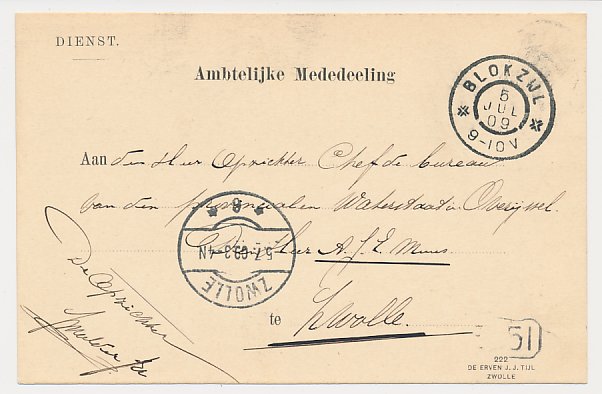 DIENST.
Ambtelijke Mededeeling
BLOKZIJL
5
JUL
09
9-10V
Aan den Heer Opzichter Chef de bureau
van den provincialen Waterstaat in Overijsel
Den Heer A. J. E.
te Zwolle.
ZWOLLE
5.7.09.3-4N
8
De Opzichter
51
222
DE ERVEN J. J. TIJL
ZWOLLE